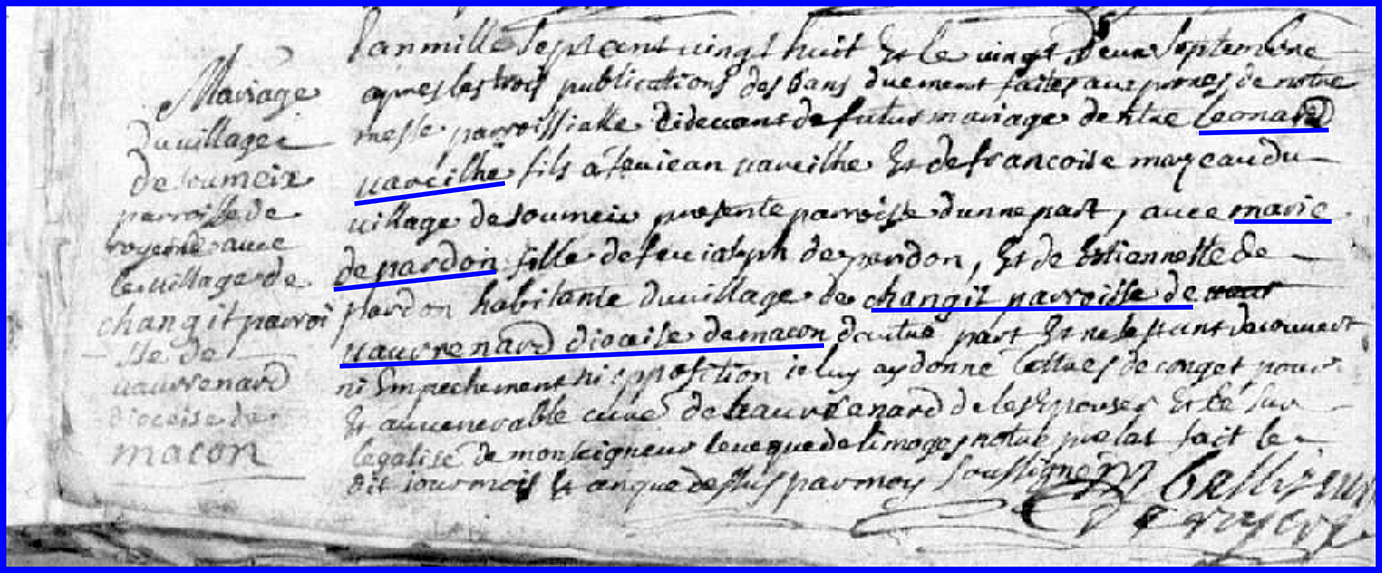 Mariage
du village
de soumeix
parroisse de
royere avec
le village de
changit parroi
sse de
vauvrenard
dioceise de
macon
Lan mille sept cent vingt huit Et le vingt Deux septembre
apres les trois publications des bans duement faites aux prones de notre
messe parroissialle cidevant de futur mariage dentre Leonard
vareilhe fils a feu jean vareilhe Et de francoise mazeau du
village de soumeix presente parroisse dunne part, avec marie
de pardon fille de feu joseph de pardon, Et de Estiennette de
pardon habitante du village de changit parroisse de vour
vauvrenard dioceise de macon dautre part Et ne sestant decouvert
ni Empechement ni opposition je luy ay donne lettres de conget pour
Et au venerable cure de vauvrenard de les Epouser Et ce sur
legalise de monseigneur leveque de limoges notre prelat fait le
dit jour mois Et an que dessus par moy soussigne
de royere